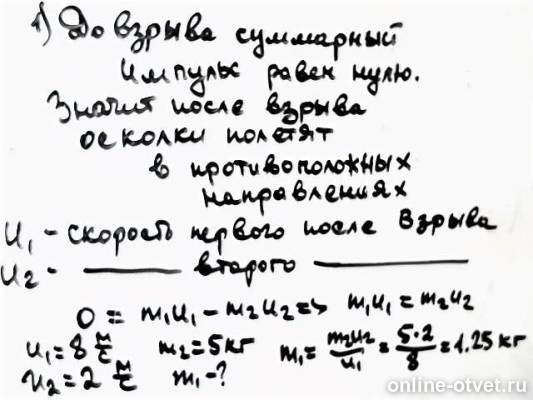 1) До взрыва суммарный
импульс равен нулю.
Значит после взрыва
осколки полетят
в противоположных
направлениях
U₁ - скорость первого после взрыва
U₂ - —— второго ——
0 = m₁U₁ - m₂U₂ => m₁U₁ = m₂U₂
U₁ = 8 м/с m₂ = 5 кг m₁ = m₂U₂/U₁ = 5·2/8 = 1.25 кг
U₂ = 2 м/с m₁ - ?
online-otvet.ru